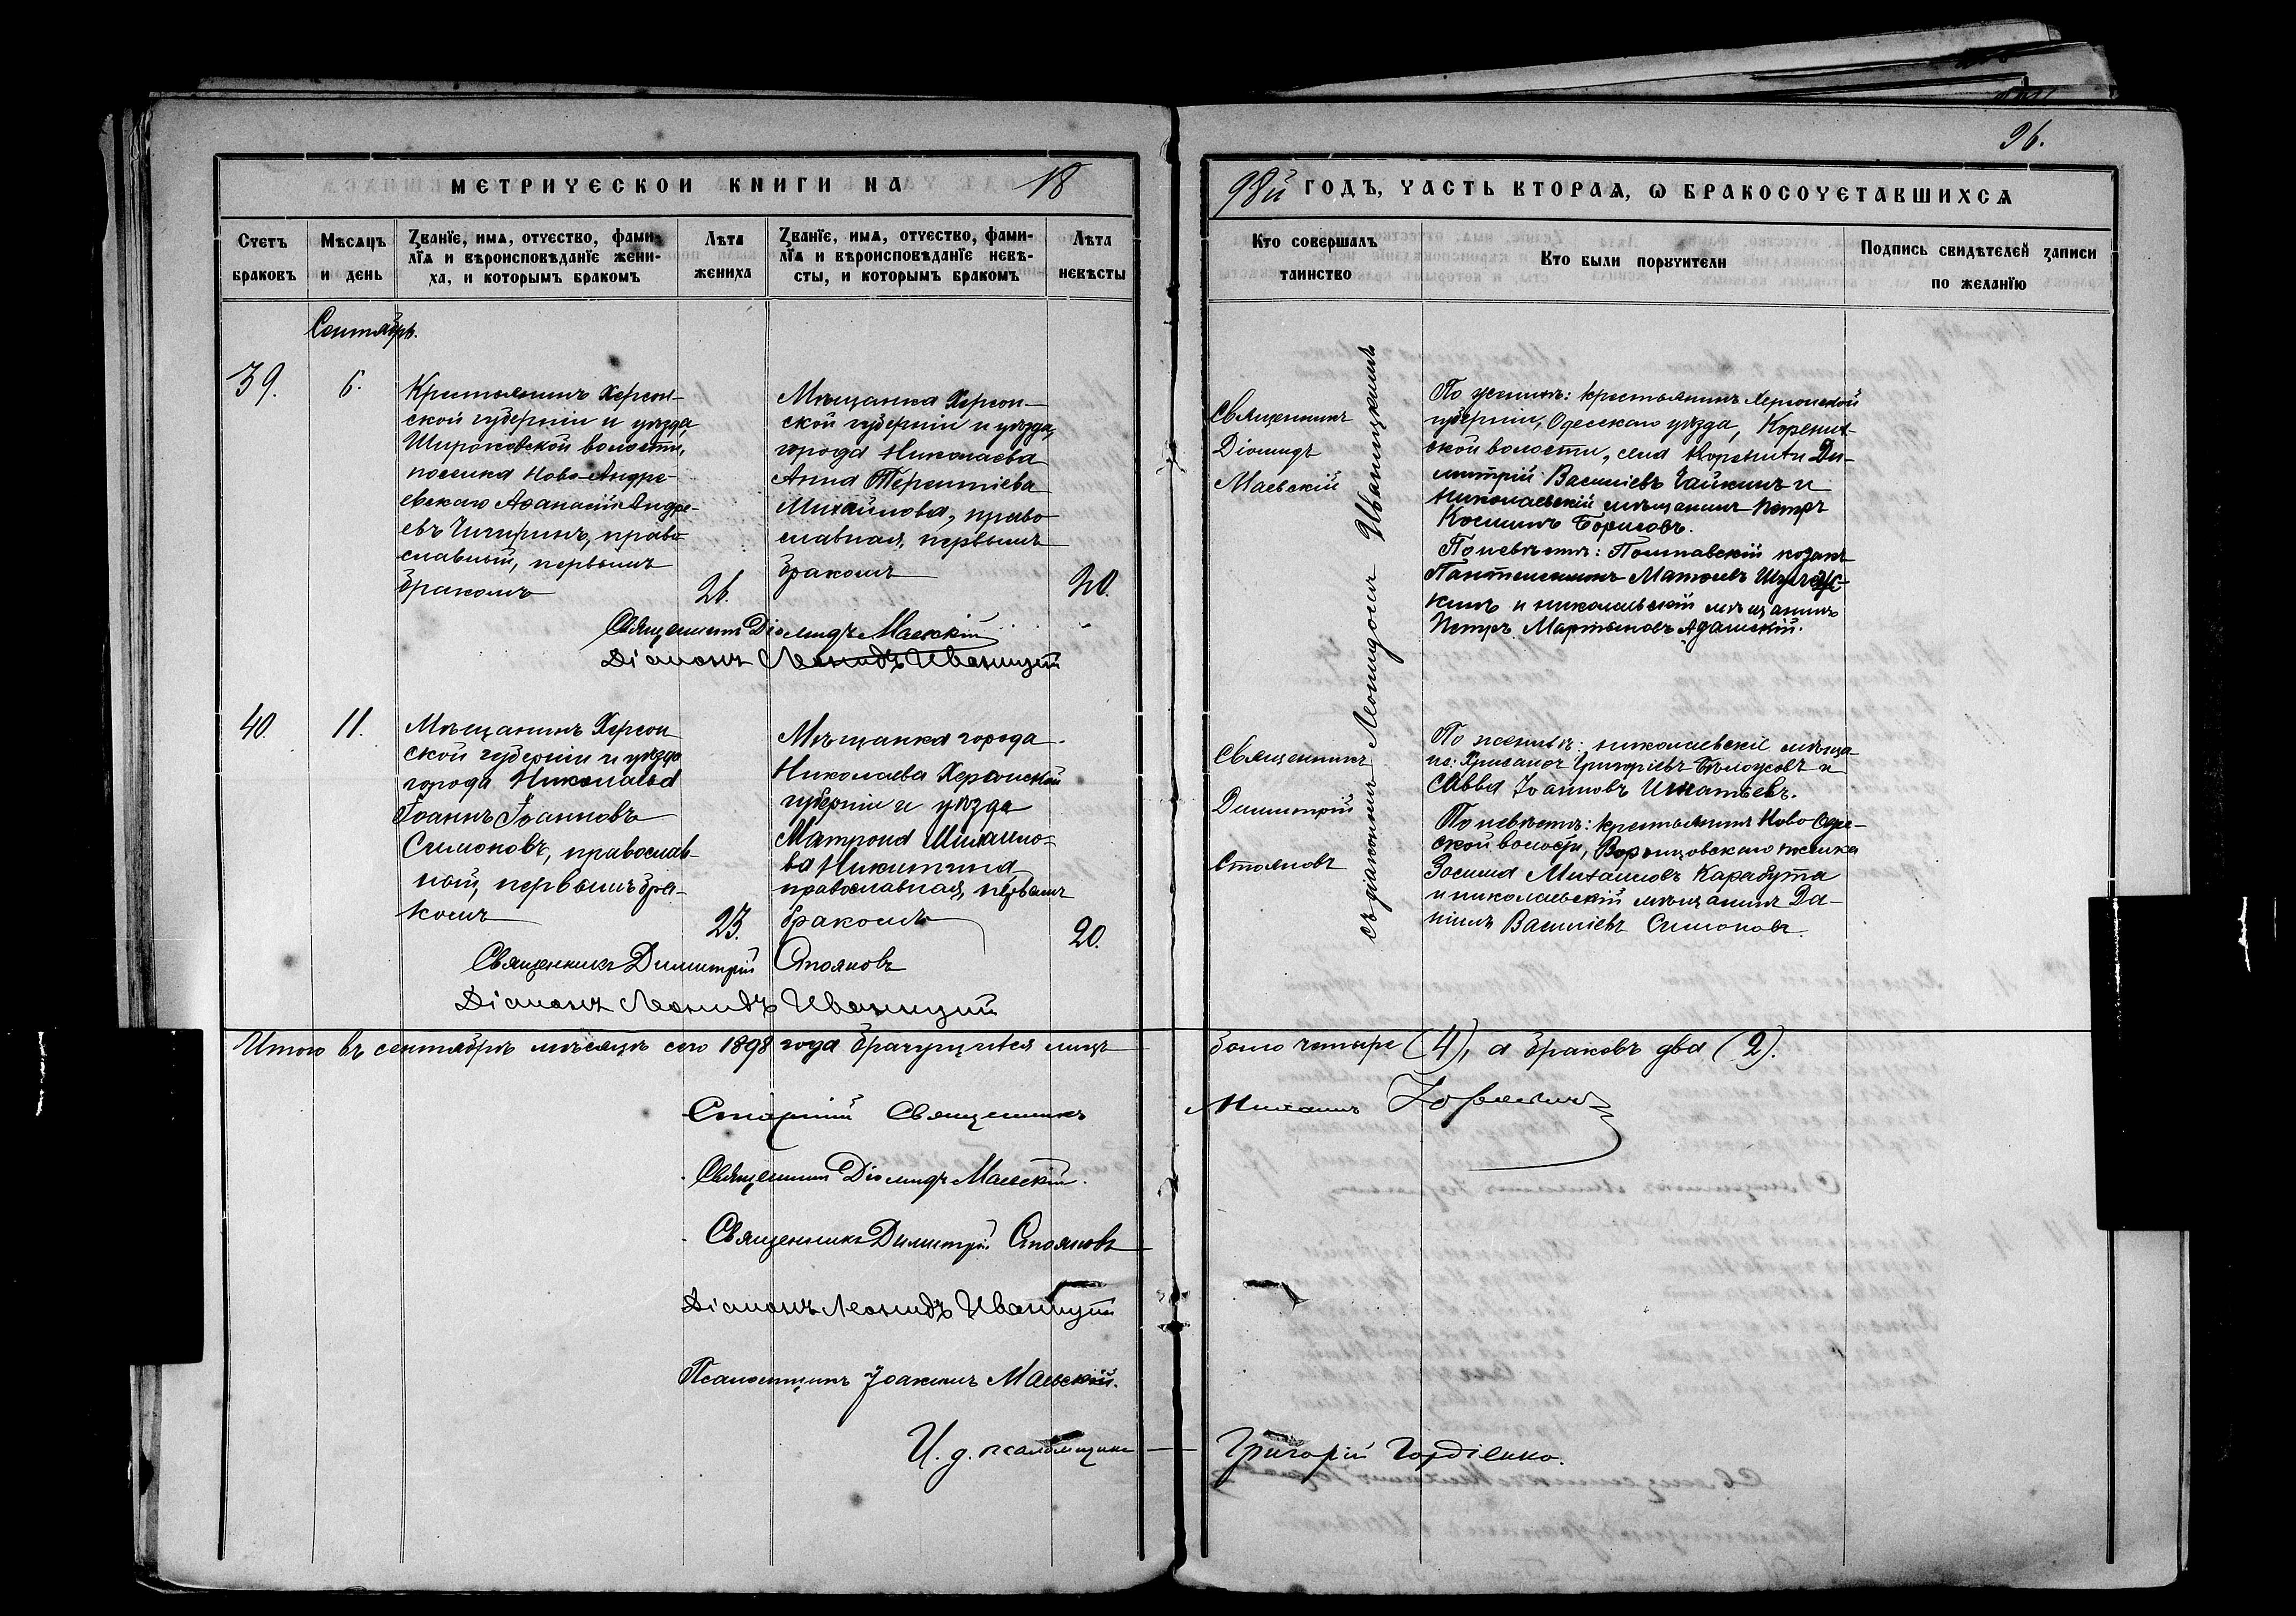 96.
МЕТРИЧЕСКОЙ КНИГИ НА 18
98й ГОДЪ, ЧАСТЬ ВТОРАѦ, Ѡ БРАКОСОЧЕТАВШИХСѦ
Счетъ браковъ
Мѣсѧцъ и день
Званїе, имѧ, отчество, фами-
лїѧ и вѣроисповѣданїе жени-
ха, и которымъ бракомъ
Лѣта жениха
Званїе, имѧ, отчество, фами-
лїѧ и вѣроисповѣданїе невѣ-
сты, и которымъ бракомъ
Лѣта невѣсты
Кто совершалъ
таинство
Кто были поручители
Подпись свидѣтелей записи
по желанїю
Сентябрь.
39.
6.
Крестьянинъ Херсон-
ской губерніи и уѣзда,
Широковской волости,
поселка Ново-Андре-
евскаго Афанасій Андре-
евъ Чигринъ, право-
славный, первымъ
бракомъ
26.
Мѣщанка Херсон-
ской губерніи и уѣзда,
города Николаева
Анна Терентіева
Михайлова, право
славная, первымъ
бракомъ
20.
Священникъ
Діомидъ
Маевскій
съ діакономъ Леонидомъ Иваницкимъ
По женихѣ: крестьянинъ Херсонской
губерніи, Одесскаго уѣзда, Корених-
ской волости, села Коренихи Ди-
митрій Василіевъ Чайкинъ и
николаевскій мѣщанинъ Петръ
Косминъ Борисовъ.
По невѣстѣ: Полтавскій козакъ
Пантелеимонъ Матѳіевъ
и николаевскій мѣщанинъ
Петръ Мартыновъ Адамскій.
Священникъ Діомидъ Маевскій
Діаконъ Леонидъ Иваницкій
40.
11.
Мѣщанинъ Херсон
ской губерніи и уѣзда
города Николаева
Іоаннъ Іоанновъ
Симоновъ, православ-
ный, первымъ бра-
комъ
23.
Мѣщанка города
Николаева Херсонской
губерніи и уѣзда
Матрона Михаило-
ва Никитина
православная, первымъ
бракомъ
20.
Священникъ
Димитрій
Стояновъ
По женихѣ: николаевскіе мѣща-
не: Хрисанфъ Григоріевъ Бѣлоусовъ и
Савва Іоанновъ Игнатьевъ.
По невѣстѣ: крестьянинъ Ново-Оде-
ской волости, Воронцовскаго поселка
Зосима Михаиловъ Карабута
и николаевскій мѣщанинъ Да-
ніилъ Василіевъ Симоновъ.
Священникъ Димитрій Стояновъ
Діаконъ Леонидъ Иваницкій
Итого въ сентябрѣ мѣсяцѣ сего 1898 года брачущихся лицъ было четыре (4), а браковъ два (2).
Старшій Священникъ Михаилъ
Священникъ Діомидъ Маевскій.
Священникъ Димитрій Стояновъ
Діаконъ Леонидъ Иваницкій
Псаломщикъ Іоакимъ Маевскій.
И. д. псаломщика Григорій Гордіенко.